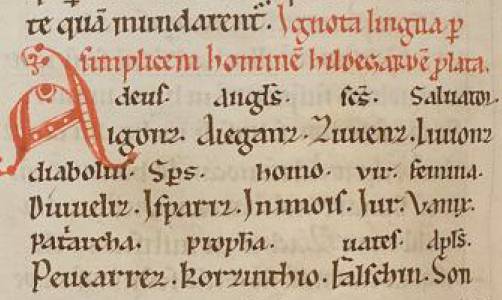 te quā mundarent᷑. Ignota lingua ꝑ
simplicem hominē hildegardē ꝓlata.
deus. angls̄. scs̄. Saluator.
Aigonz. aieganz. Zuuenz. Liuionz
diabolus. Sps̄. homo. vir. femina.
Diuueliz. Ispariz. Inimois. Iur. Vanix.
Pat̄archa. proph̄a. uates. apls̄.
Peuearrez. Korzinthio. falschin. Son